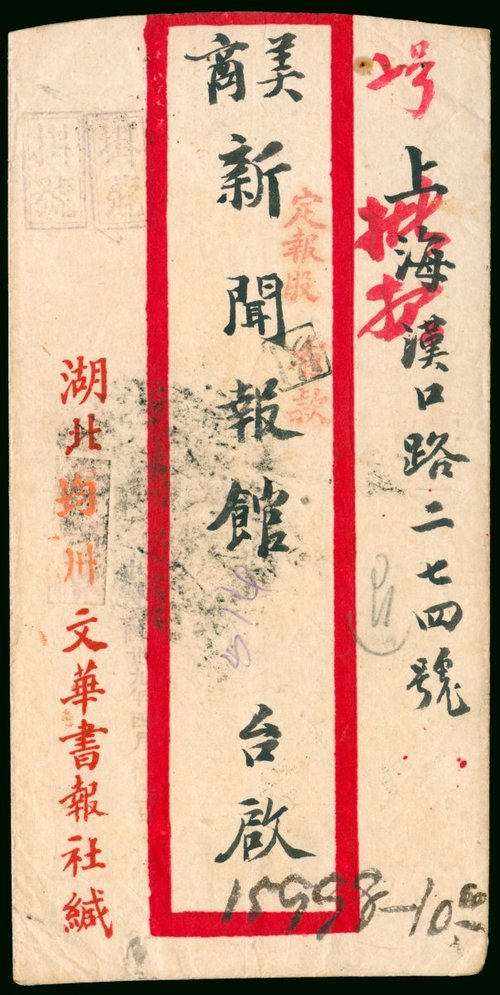 上海漢口路二七四號
掛號
定報股
美商
新聞報館 台啟
掛號
掛號
湖北均州文華書報社緘
15998-10